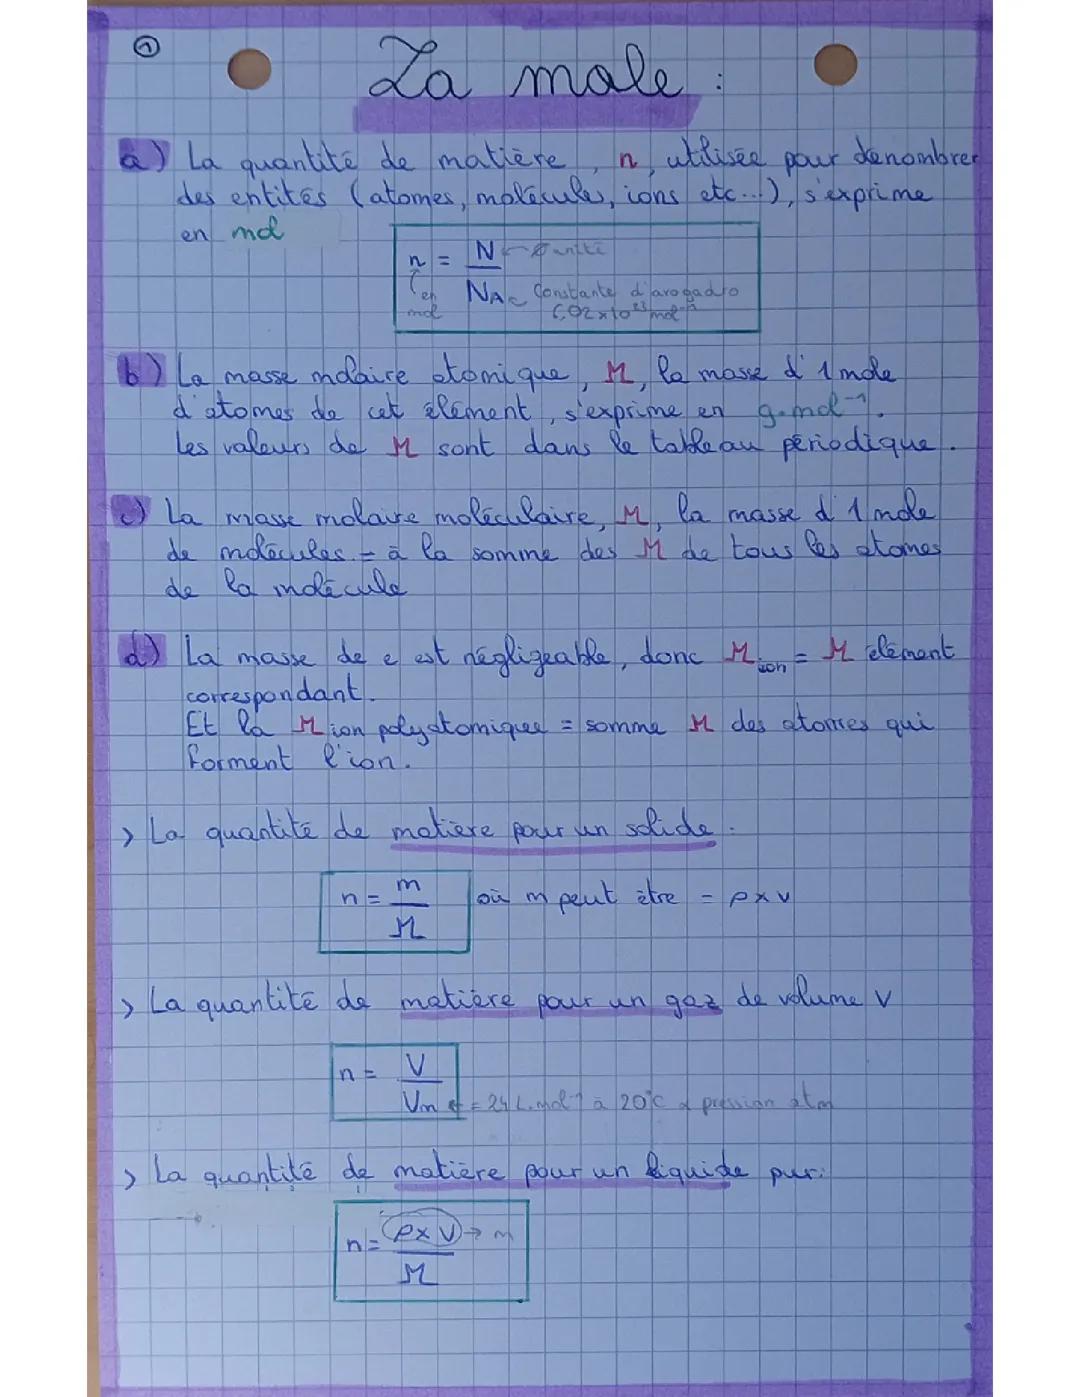 1
La mole :
a) La quantité de matière, n, utilisée pour dénombrer
des entités (atomes, molécules, ions etc...), s'exprime
en mol
n = N / NA
∅ unité
en mol
Constante d'avogadro
6,02x10²³ mol⁻¹
b) La masse molaire atomique, M, la masse d'1 mole
d'atomes de cet élément, s'exprime en g.mol⁻¹.
Les valeurs de M sont dans le tableau périodique.
c) La masse molaire moléculaire, M, la masse d'1 mole
de molécules = à la somme des M de tous les atomes
de la molécule
d) La masse de e est négligeable, donc M ion = M élément
correspondant.
Et la M ion polyatomiques = somme M des atomes qui
forment l'ion.
> La quantité de matière pour un solide :
n = m / M où m peut être = ρ x v
> La quantité de matière pour un gaz de volume V
n = V / Vm = 24 L.mol⁻¹ à 20°C & pression atm
> La quantité de matière pour un liquide pur:
→
n = ρ x V / M → m